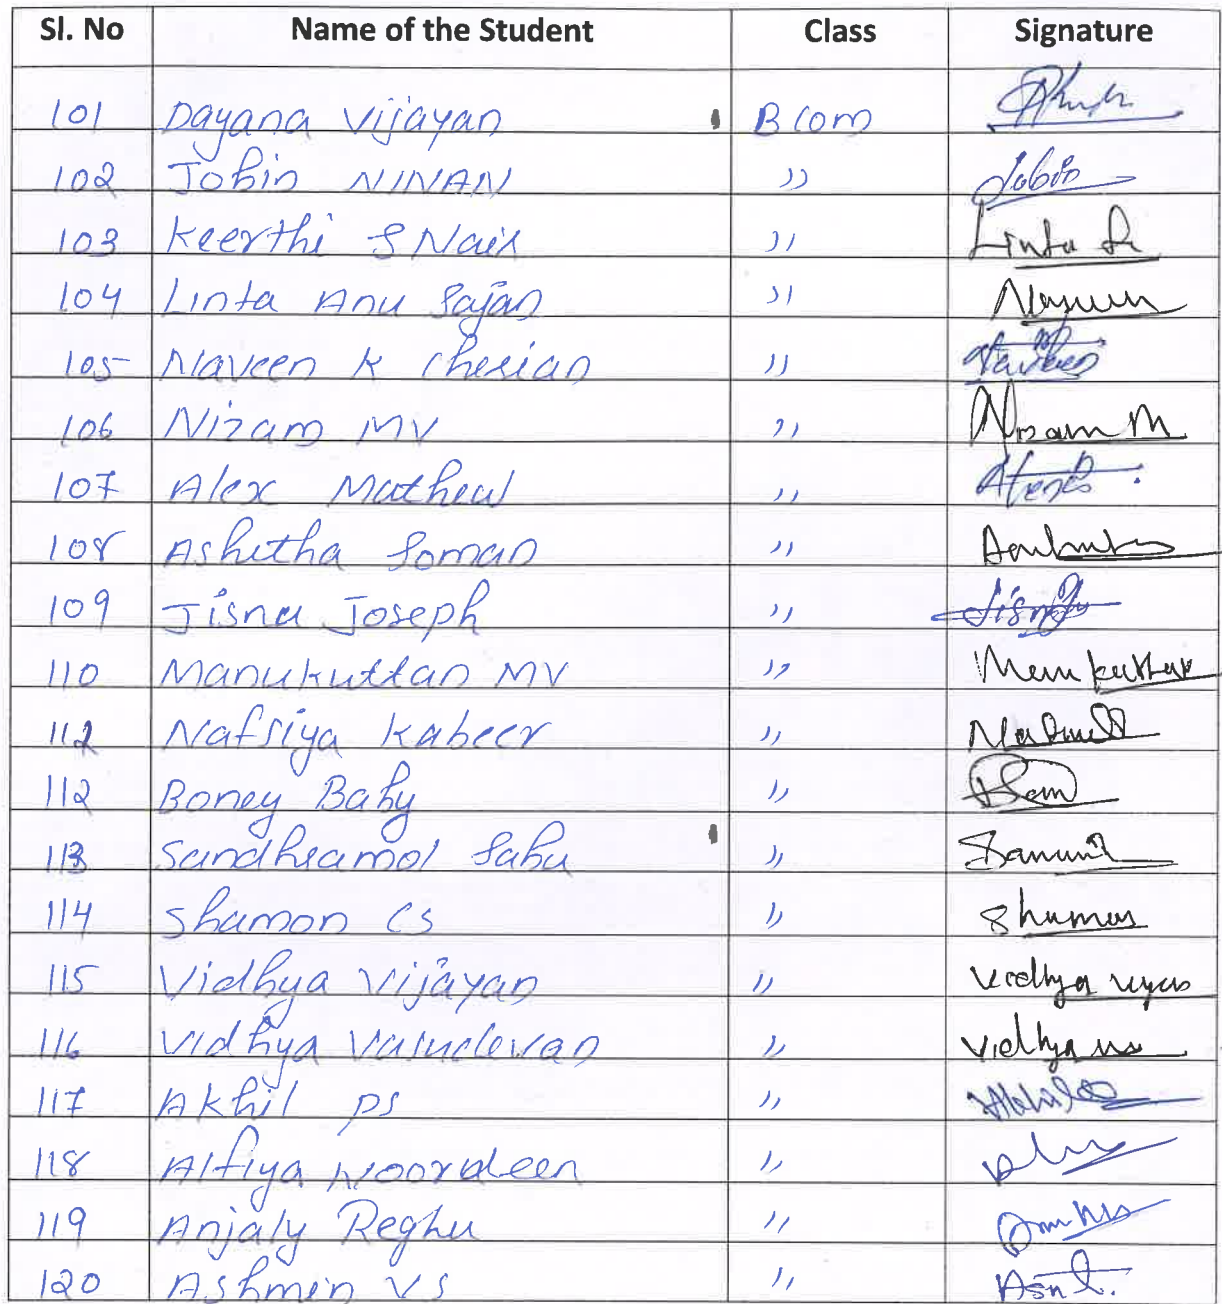 Sl. No Name of the Student Class Signature
101 Dayana Vijayan B com
102 Jobin NINAN " Jobin
103 Keerthi S Nair " Linta
104 Linta Anu Sajan "
105 Naveen K Cherian " Naveen
106 Nizam MV " Nizam M
107 Alex Mathew "
108 Ashitha Soman "
109 Jisna Joseph " Jisna
110 Manukuttan MV " Manukuttan
112 Nafsiya Kabeer "
112 Boney Baby "
113 Sandhramol Sabu "
114 Shamon CS " Shamon
115 Vidhya Vijayan " Vidhya
116 Vidhya Vasudevan " Vidhya
117 Akhil PS "
118 Alfiya Noordeen "
119 Anjaly Reghu "
120 Ashmin VS "